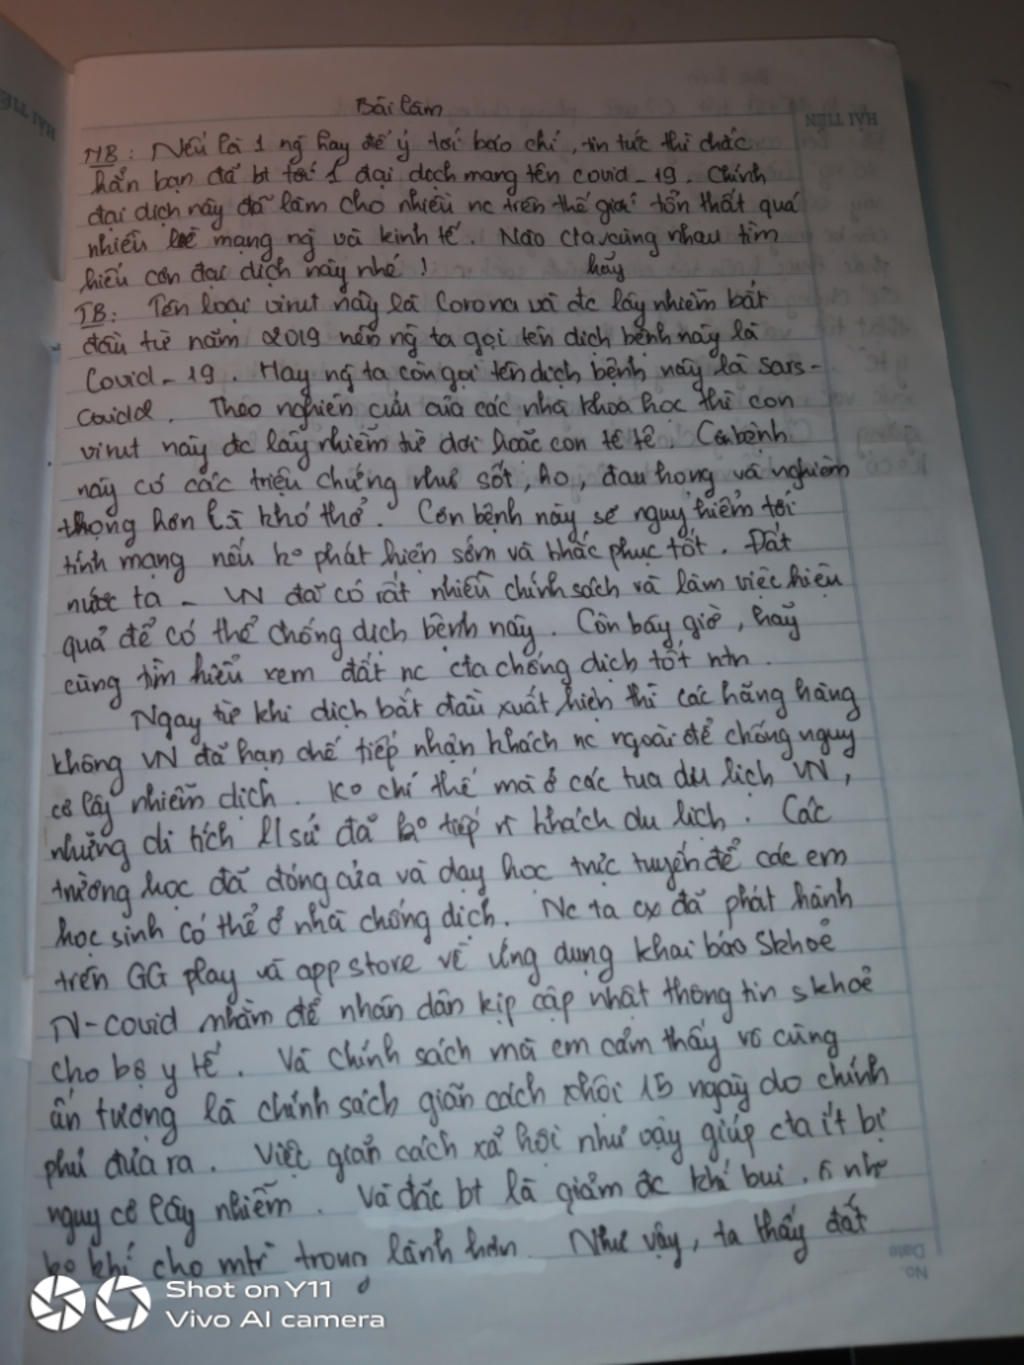 Bài làm
HẢI TIẾN
MB: Nếu là 1 ng hay để ý tới báo chí, tin tức thì chắc
hẳn bạn đã bt tới 1 đại dịch mang tên covid-19. Chính
đại dịch này đã làm cho nhiều nc trên thế giới tổn thất quá
nhiều về mạng ng và kinh tế. Nào cta hãy cùng nhau tìm
hiểu cơn đại dịch này nhé!
TB: Tên loại virut này là Corona và đc lây nhiễm bắt
đầu từ năm 2019 nên ng ta gọi tên dịch bệnh này là
Covid-19. Hay ng ta còn gọi tên dịch bệnh này là sars-
. Theo nghiên cứu của các nhà khoa học thì con
virut này đc lây nhiễm từ dơi hoặc con tê tê. Căn bệnh
này có các triệu chứng như sốt, ho, đau họng và nghiêm
thọng hơn là khó thở. Cơn bệnh này sẽ nguy hiểm tới
tính mạng nếu ko phát hiện sớm và khắc phục tốt. Đất
nước ta - VN đã có rất nhiều chính sách và làm việc hiệu
quả để có thể chống dịch bệnh này. Còn bây giờ, hãy
cùng tìm hiểu xem đất nc cta chống dịch tốt ntn.
Ngay từ khi dịch bắt đầu xuất hiện thì các hãng hàng
không VN đã hạn chế tiếp nhận khách nc ngoài để chống nguy
cơ lây nhiễm dịch. Ko chỉ thế mà ở các tua du lịch VN,
những di tích lị sử đã ko tiếp khách du lịch. Các
trường học đã đóng cửa và dạy học trực tuyến để các em
học sinh có thể ở nhà chống dịch. Nc ta cx đã phát hành
trên GG play và app store về ứng dụng khai báo Skhoẻ
N-covid nhằm để nhân dân kịp cập nhật thông tin skhoẻ
cho bộ y tế. Và chính sách mà em cảm thấy vô cùng
ấn tượng là chính sách giãn cách xhội 15 ngày do chính
phủ đưa ra. Việc giãn cách xã hội như vậy giúp cta ít bị
nguy cơ lây nhiễm. Và đặc bt là giảm đc khí bụi, ô nh
ko khí cho mtr trong lành hơn. Như vậy, ta thấy đất
No.
Date
Shot on Y11
Vivo AI camera